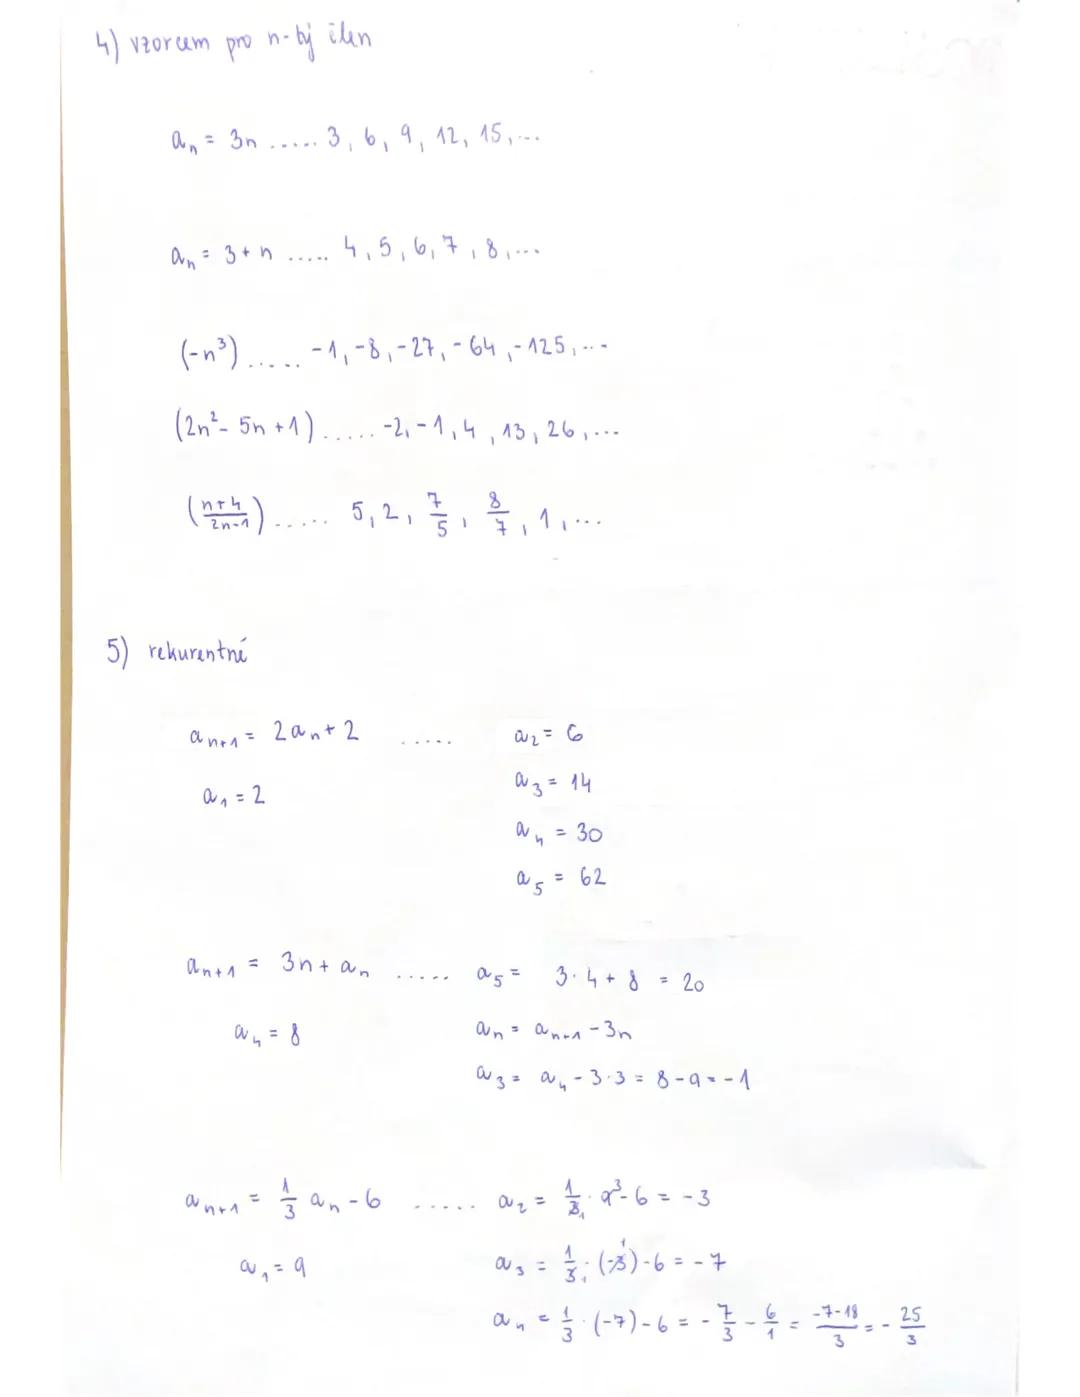 4) vzorcem pro n-tý člen
aₙ = 3n ..... 3, 6, 9, 12, 15, ...
aₙ = 3 + n ..... 4, 5, 6, 7, 8, ...
(-n³) ..... -1, -8, -27, -64, -125, ...
(2n² - 5n + 1) ..... -2, -1, 4, 13, 26, ...
((n+4)/(2n-1)) ..... 5, 2, 7/5, 8/7, 1, ...
5) rekurentně
aₙ₊₁ = 2aₙ + 2 ..... a₂ = 6
a₁ = 2 a₃ = 14
a₄ = 30
a₅ = 62
aₙ₊₁ = 3n + aₙ ..... a₅ = 3·4 + 8 = 20
a₄ = 8 aₙ = aₙ₊₁ - 3n
a₃ = a₄ - 3·3 = 8 - 9 = -1
aₙ₊₁ = 1/3 aₙ - 6 ..... a₂ = 1/3 · 9 - 6 = -3
a₁ = 9 a₃ = 1/3 · (-3) - 6 = -7
a₄ = 1/3 · (-7) - 6 = - 7/3 - 6/1 = (-7-18)/3 = - 25/3